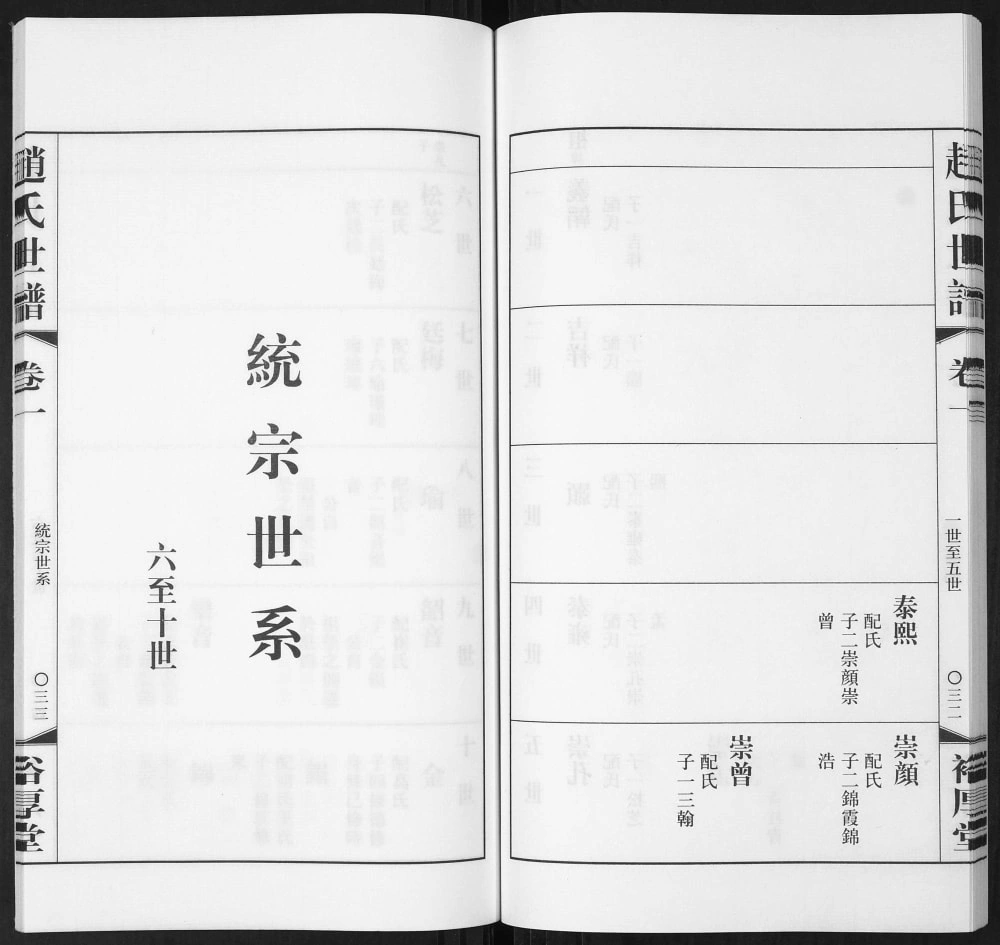 趙氏世譜
卷一
一世至五世
〇三二
裕厚堂
泰熙
配氏
子二崇顏崇
曾
崇顏
配氏
子二錦霞錦
浩
崇曾
配氏
子一三翰
統宗世系
六至十世
趙氏世譜
卷一
統宗世系
〇三三
裕厚堂